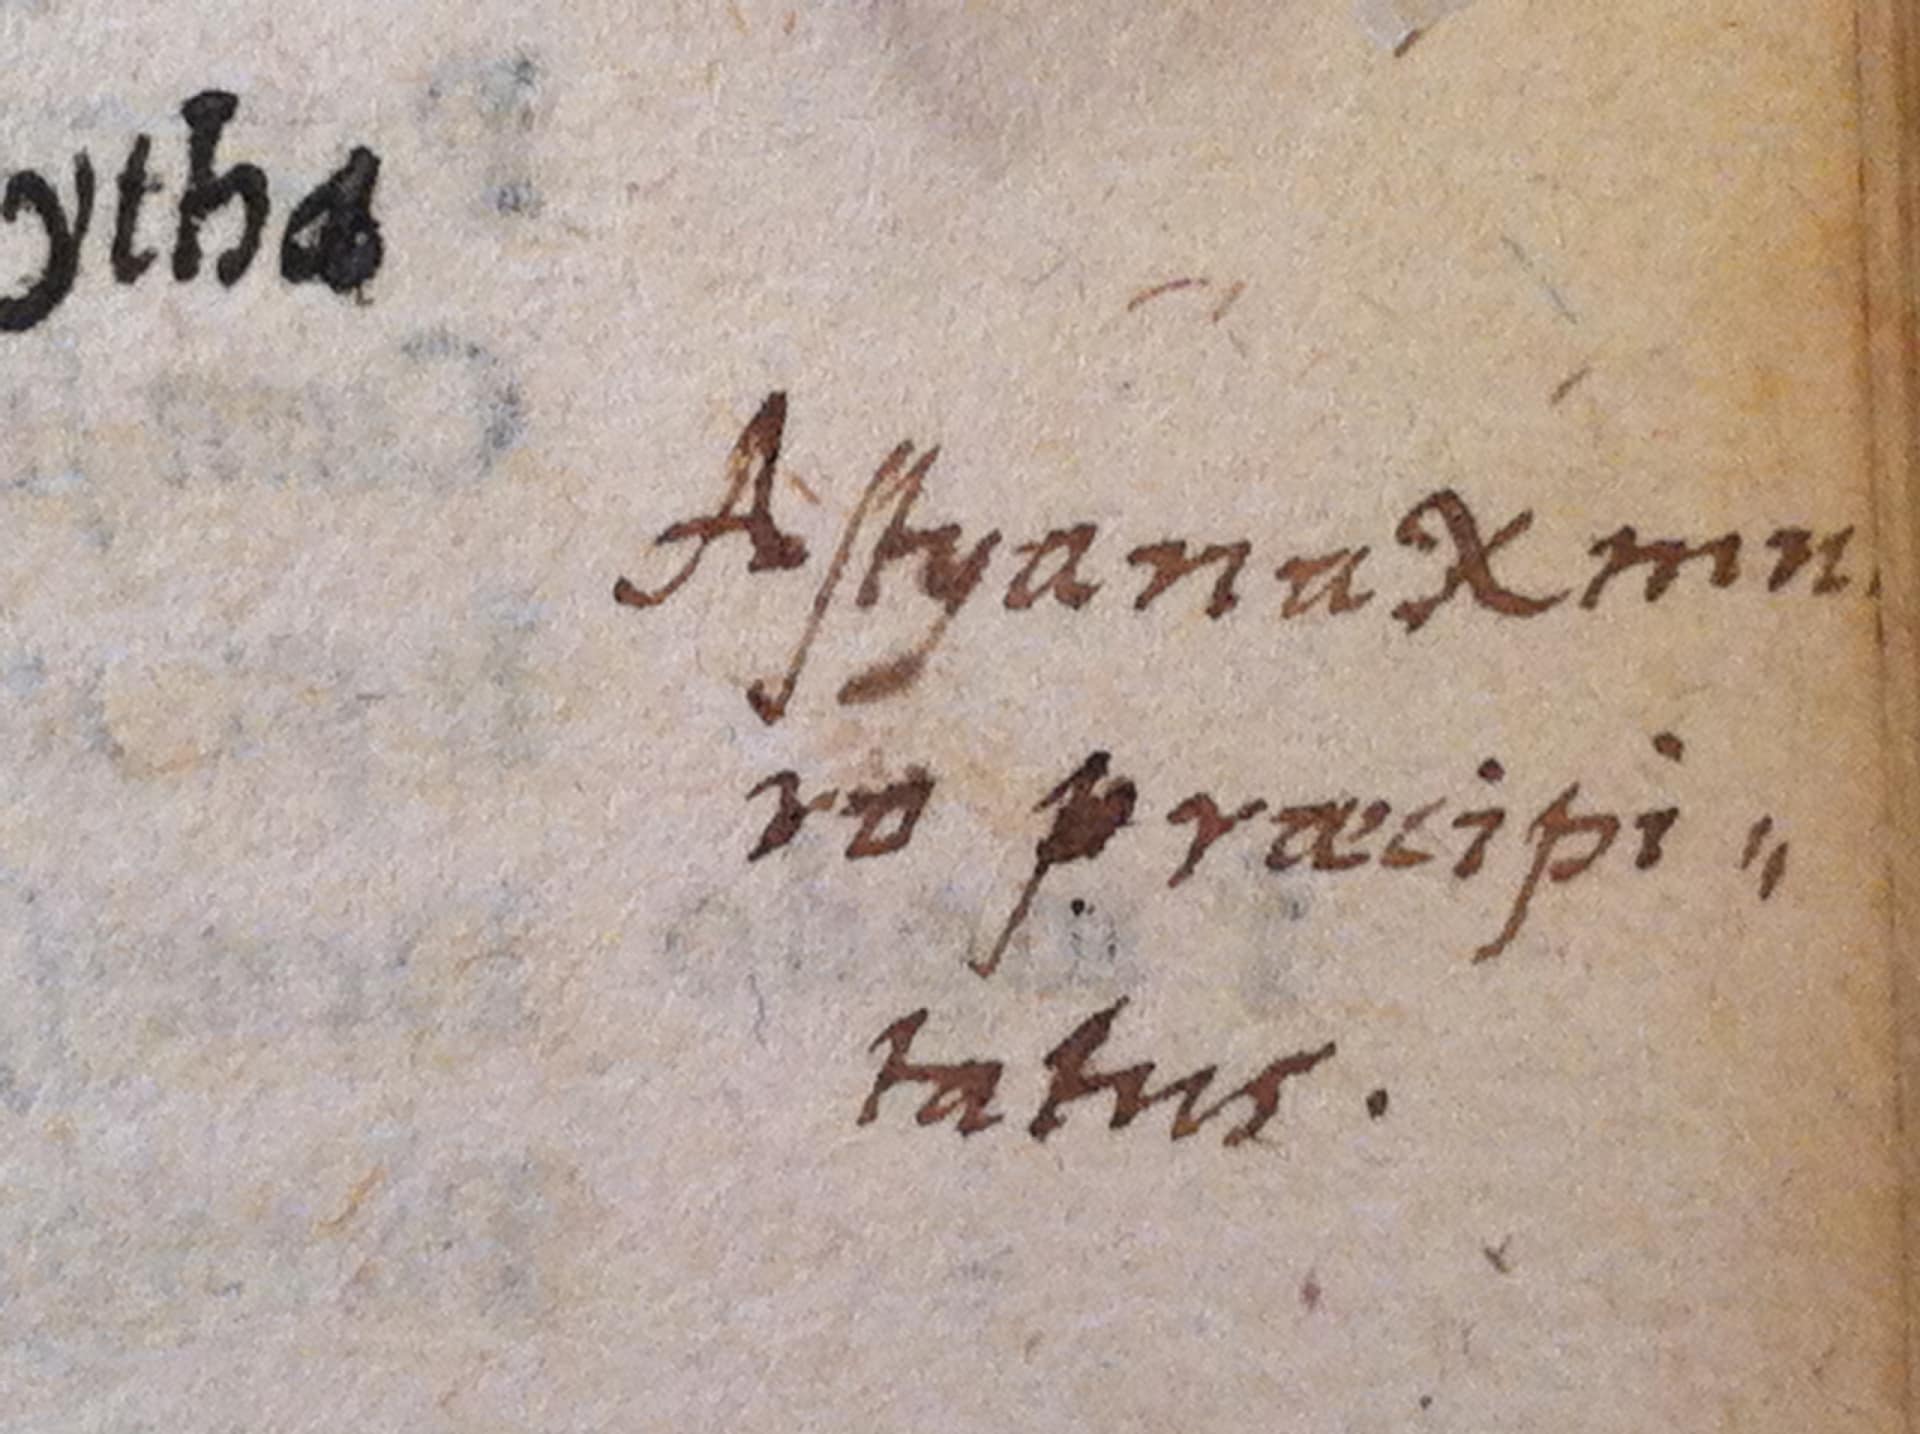 ytha
Aſtyanax mu
ro præcipi〃
tatus.